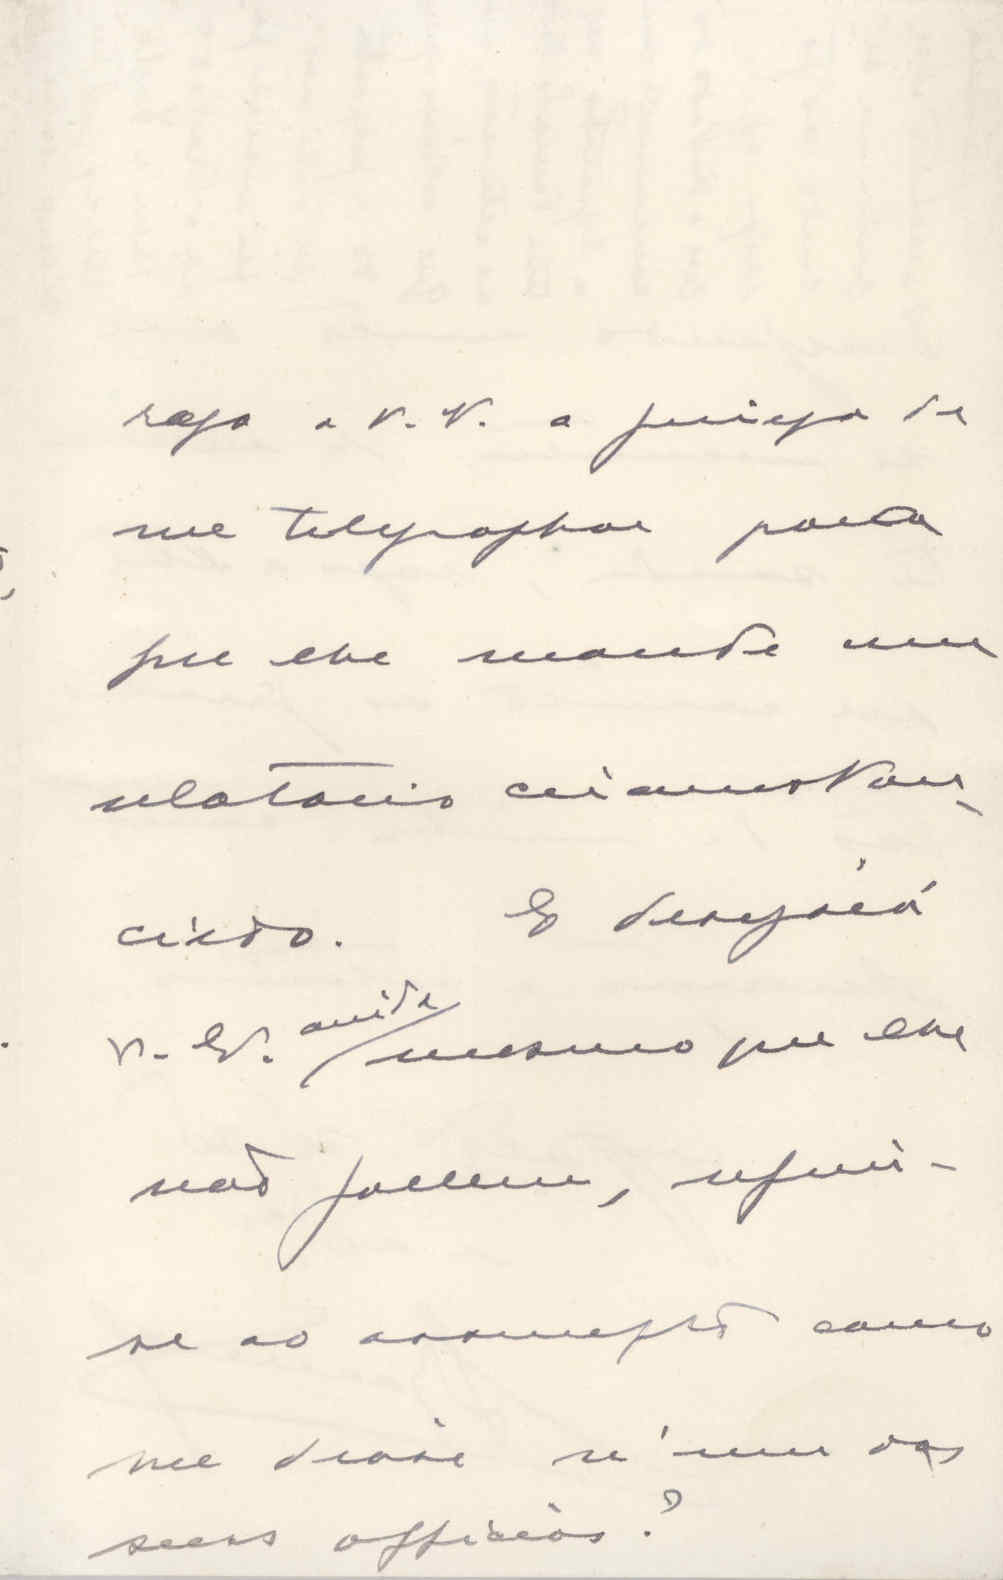 rogo a V. E. a fineza de
me telegraphar para
que elle mande um
relatorio circumstan-
ciado. E desejará
V. Ex. ainda mesmo que elle
não fallem, referir-
se ao assumpto como
me disse n'um dos
seus officios?